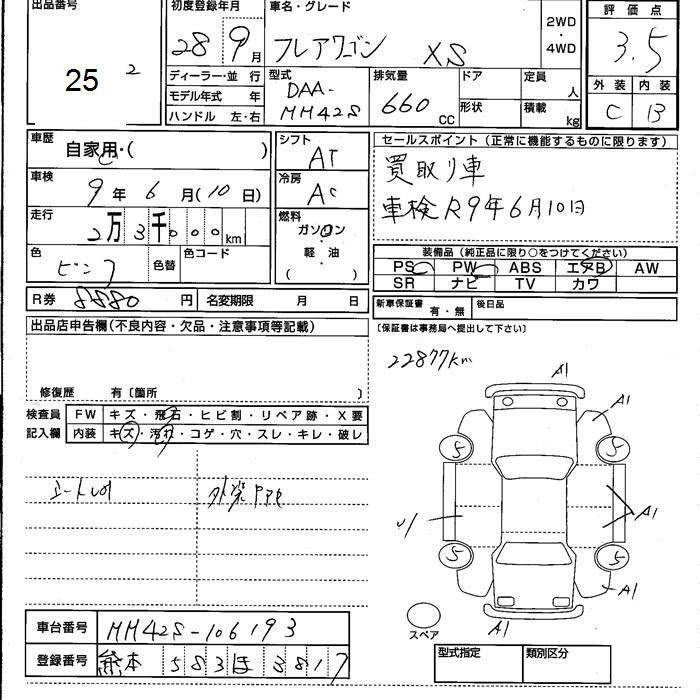 出品番号
25 2
初度登録年月
28 9月
車名・グレード
フレアワゴン XS
2WD
・
4WD
評価点
3.5
外装 内装
C B
ディーラー・並 行
モデル年式 年
ハンドル 左・右
型式
DAA-
MM42S
排気量
660 CC
ドア
形状
定員 人
積載 kg
車歴
自家用・( )
車検
9年 6月(10日)
走行
2万3千000km
色
ピンク
色替
色コード
R券 8880円
名変期限 月 日
シフト
AT
冷房
AC
燃料
ガソリン
・
軽油
( )
セールスポイント(正常に機能するものに限ります)
買取り車
車検R9年6月10日
装備品(純正品に限り○をつけてください)
PS PW ABS エアB AW
SR ナビ TV カワ
新車保証書 有・無
後日品
〔保証書は事務局へ提出して下さい〕
出品店申告欄(不良内容・欠品・注意事項等記載)
修復歴 有〔箇所 〕
検査員
記入欄
FW キズ・飛石・ヒビ割・リペア跡・X要
内装 キズ・汚れ・コゲ・穴・スレ・キレ・破レ
22877km
A1
A1
5 5
A1
5 5
A1
A1
スペア
車台番号 MM42S-106193
登録番号 熊本 583 ほ 3817
型式指定
類別区分